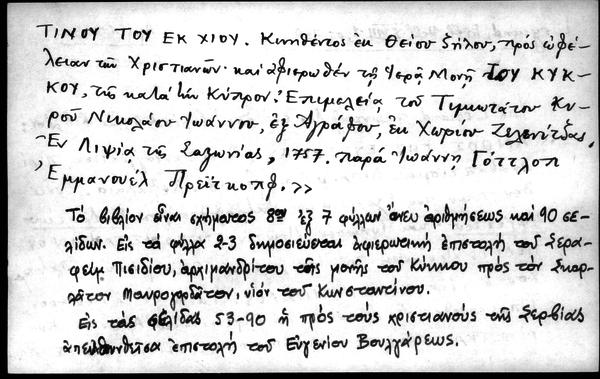 ΤΙΝΟΥ ΤΟΥ ΕΚ ΧΙΟΥ. Κινηθέντος ἐκ θείου ζήλου, πρός ὠφέ-
λειαν τῶν Χριστιανῶν· καί ἀφιερωθέν τῇ Ἱερᾷ Μονῇ ΤΟΥ ΚΥΚ-
ΚΟΥ, τῆς κατά τήν Κύπρον. Ἐπιμελείᾳ τοῦ Τιμιωτάτου Κυ-
ροῦ Νικολάου Ἰωάννου, ἐξ Ἀγράφου, ἐκ Χωρίου Ζελενίτζας,
Ἐν Λιψίᾳ τῆς Σαξωνίας, 1757. παρά Ἰωάννῃ Γόττλοπ
Ἐμμανουέλ Πρεΐτκοπφ. >>
Τό βιβλίον εἶναι σχήματος 8ον ἐξ 7 φύλλων ἄνευ ἀριθμήσεως καί 90 σε-
λίδων. Εἰς τά φύλλα 2-3 δημοσιεύεται ἀφιερωτική ἐπιστολή τοῦ Σερα-
φείμ Πισιδίου, ἀρχιμανδρίτου τῆς μονῆς τοῦ Κύκκου πρός τόν Σκαρ-
λᾶτον Μαυροχορδᾶτον, υἱόν τοῦ Κωνσταντίνου.
Εἰς τάς σελίδας 53-90 ἡ πρός τούς χριστιανούς τῆς Σερβίας
ἀπευθυνθεῖσα ἐπιστολή τοῦ Εὐγενίου Βουλγάρεως.